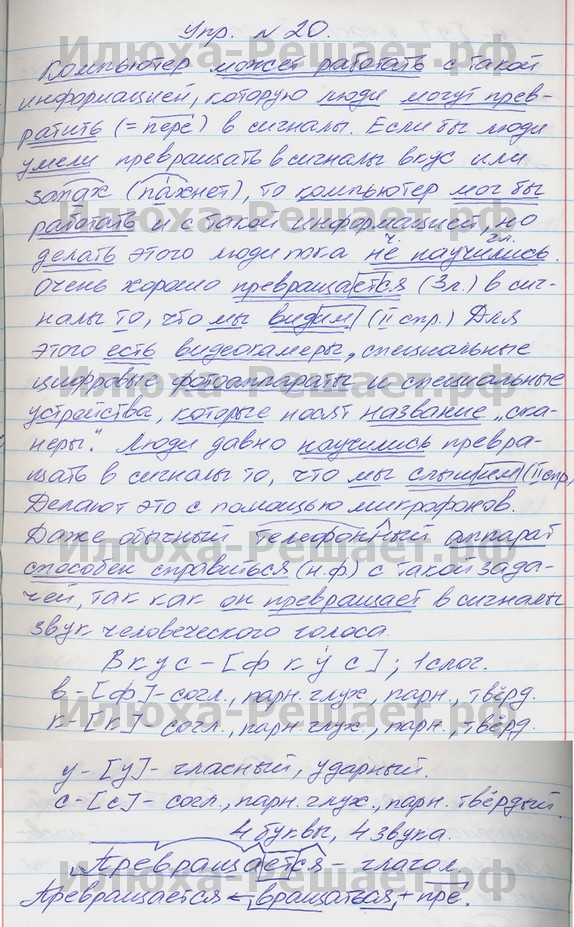 Упр. №20.
Компьютер может работать с такой
информацией, которую люди могут прев-
ратить (= пере) в сигналы. Если бы люди
умели превращать в сигналы вкус или
запах (пахнет), то компьютер мог бы
работать и с такой информацией, но
делать этого люди пока не научились.
Очень хорошо превращается (3л.) в сиг-
налы то, что мы видим (II спр.) Для
этого есть видеокамеры, специальные
цифровые фотоаппараты и специальные
устройства, которые носят название „ска-
неры“. Люди давно научились превра-
щать в сигналы то, что мы слышим (II спр.)
Делают это с помощью микрофонов.
Даже обычный телефонный аппарат
способен справиться (н.ф) с такой зада-
чей, так как он превращает в сигналы
звук человеческого голоса.
Вкус – [ф к у́ с]; 1 слог.
в – [ф] – согл., парн. глух., парн., твёрд.
к – [к] – согл., парн. глух., парн., твёрд.
у – [у] – гласный, ударный.
с – [с] – согл., парн. глух., парн. твёрдый.
4 буквы, 4 звука.
Превращается – глагол.
Превращается ← вращаться + пре.
Илюха-Решает.рф